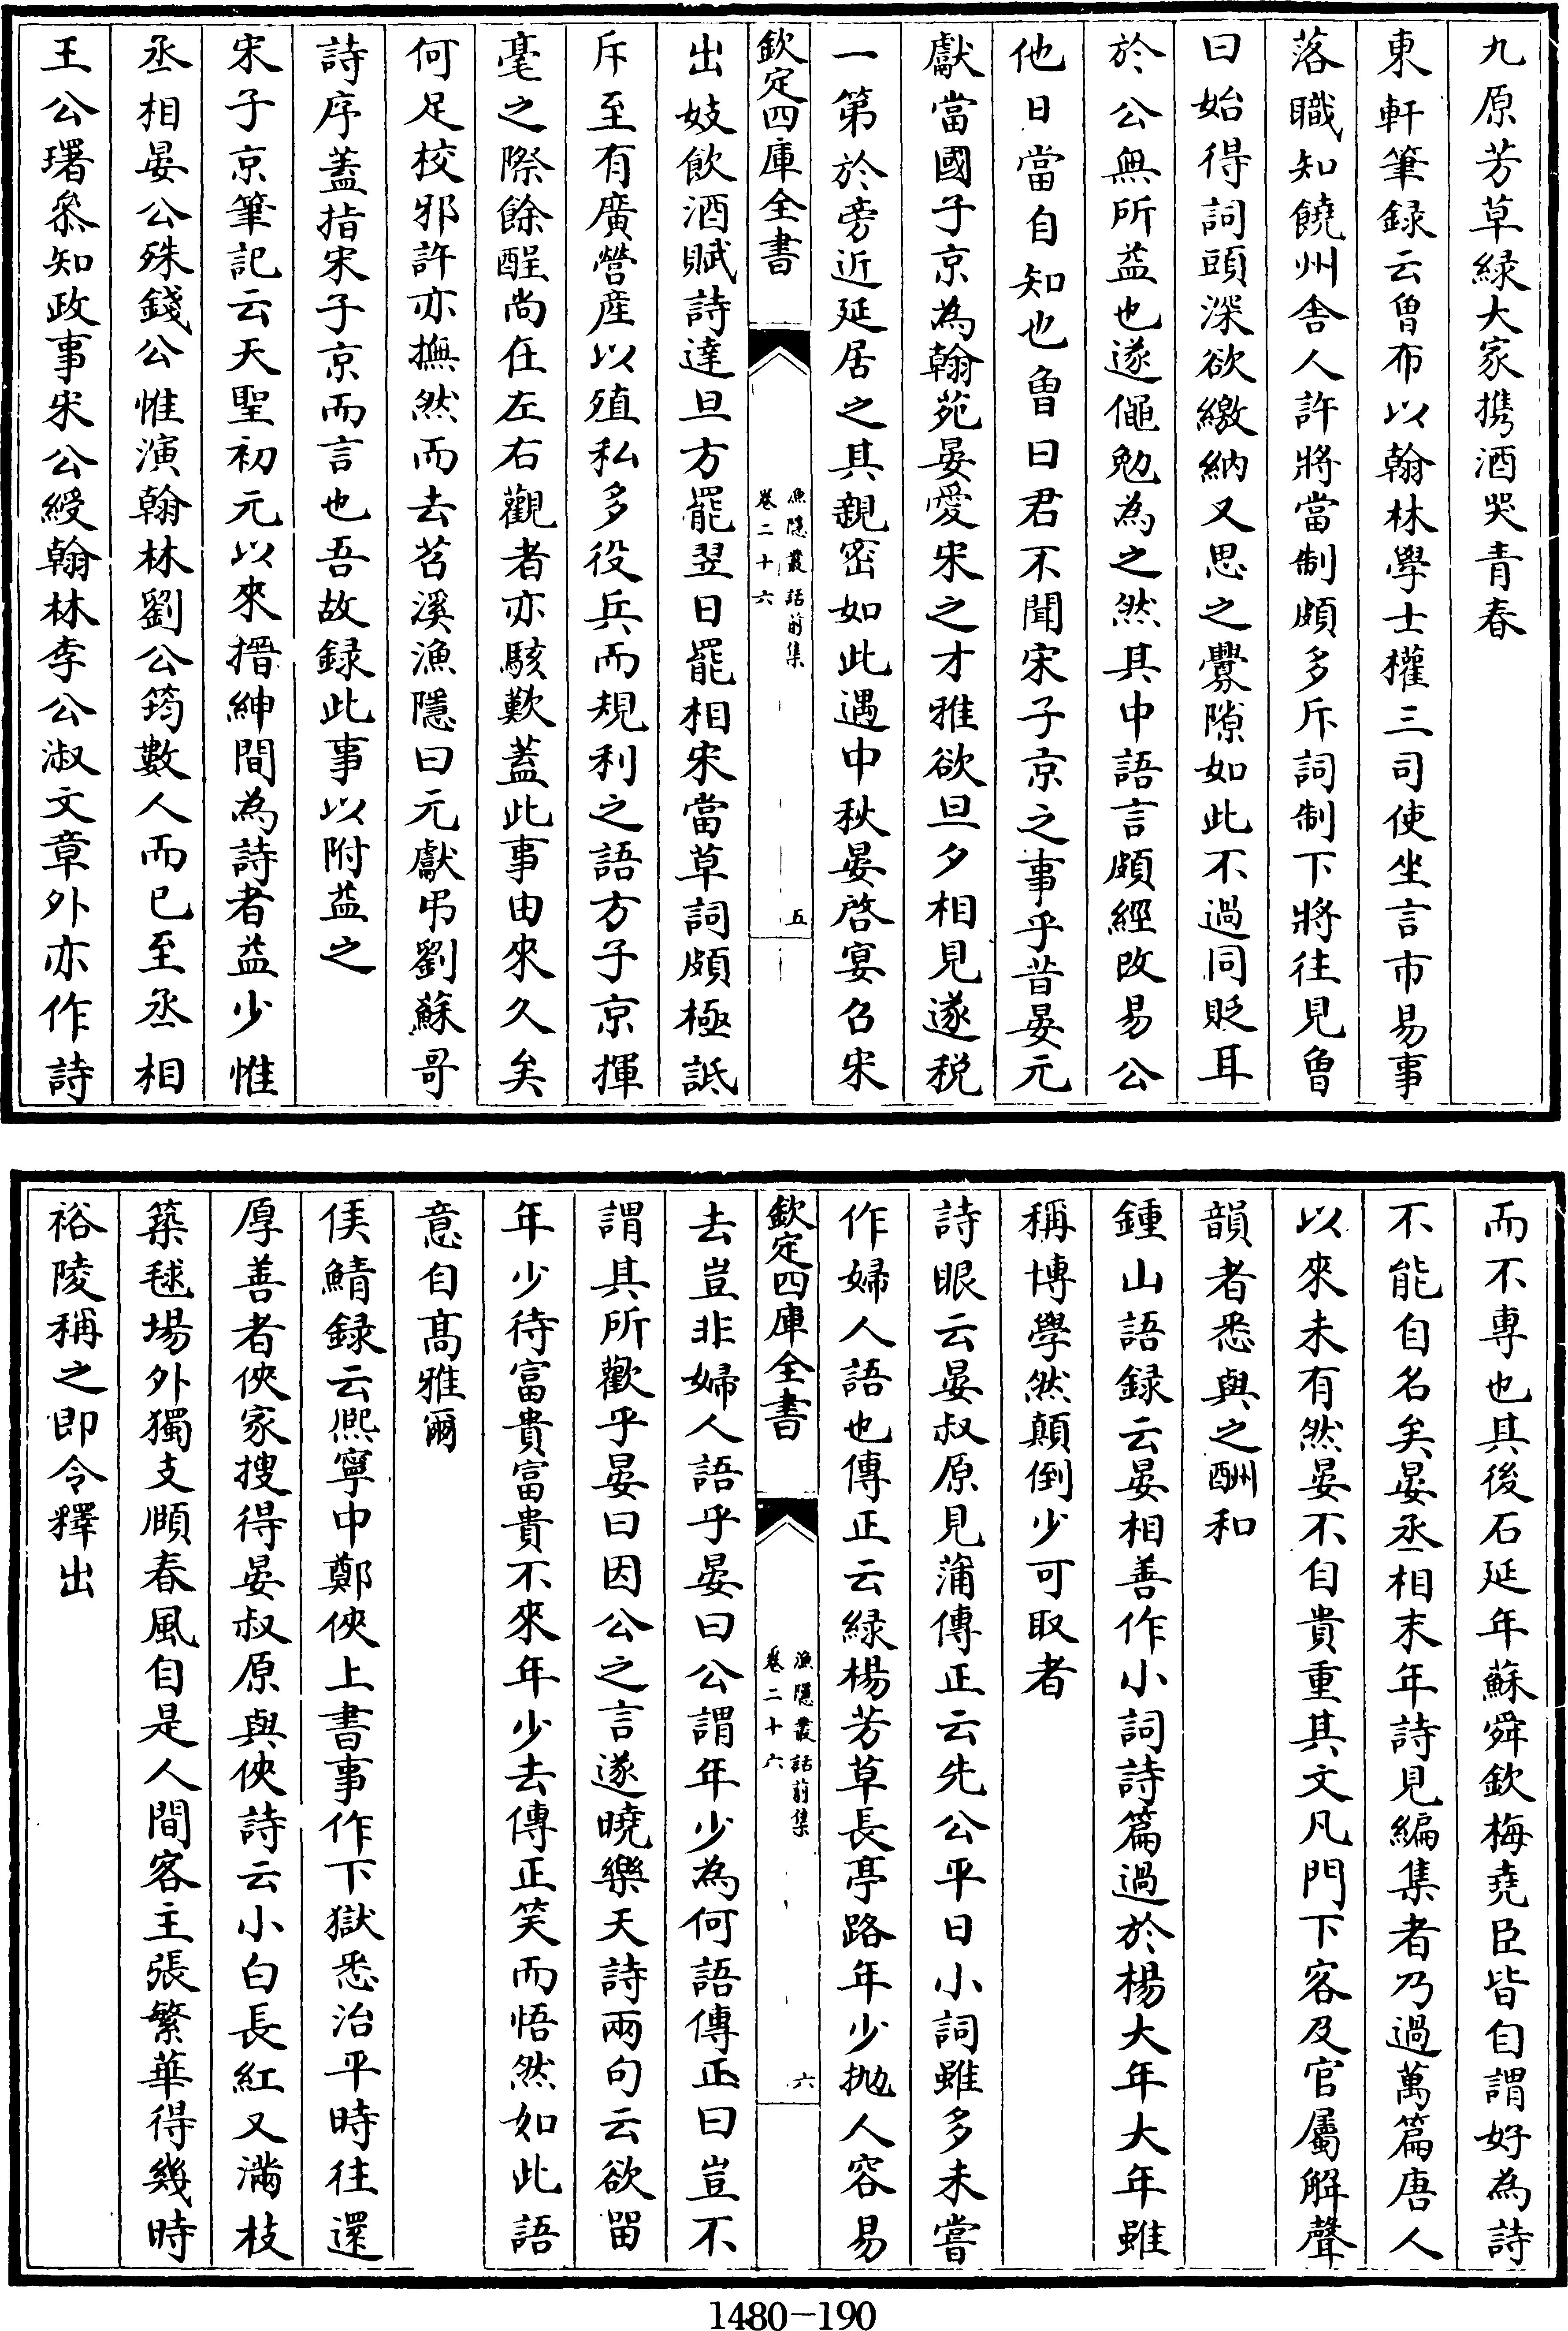 九原芳草緑大家携酒哭青春
東軒筆録云曾布以翰林學士權三司使坐言市易事
落職知饒州舍人許將當制頗多斥詞制下將往見曾
曰始得詞頭深欲繳納又思之釁隙如此不過同貶耳
於公無所益也遂僶勉為之然其中語言頗經改易公
他日當自知也曾曰君不聞宋子京之事乎昔晏元
獻當國子京為翰苑晏愛宋之才雅欲旦夕相見遂税
一第於旁近延居之其親密如此遇中秋晏啓宴召宋
欽定四庫全書
漁隠叢話前集
卷二十六
五
出妓飲酒賦詩達旦方罷翌日罷相宋當草詞頗極詆
斥至有廣營産以殖私多役兵而規利之語方子京揮
毫之際餘酲尚在左右觀者亦駭歎蓋此事由來久矣
何足校邪許亦撫然而去苕溪漁隠曰元獻弔劉蘇哥
詩序蓋指宋子京而言也吾故録此事以附益之
宋子京筆記云天聖初元以來搢紳間為詩者益少惟
丞相晏公殊錢公惟演翰林劉公筠數人而已至丞相
王公曙叅知政事宋公綬翰林李公淑文章外亦作詩
而不專也其後石延年蘇舜欽梅堯臣皆自謂好為詩
不能自名矣晏丞相末年詩見編集者乃過萬篇唐人
以來未有然晏不自貴重其文凡門下客及官屬解聲
韻者悉與之酬和
鍾山語録云晏相善作小詞詩篇過於楊大年大年雖
稱博學然顛倒少可取者
詩眼云晏叔原見蒲傳正云先公平日小詞雖多未嘗
作婦人語也傳正云緑楊芳草長亭路年少抛人容易
欽定四庫全書
漁隠叢話前集
卷二十六
六
去豈非婦人語乎晏曰公謂年少為何語傳正曰豈不
謂其所歡乎晏曰因公之言遂曉樂天詩兩句云欲留
年少待富貴富貴不來年少去傳正笑而悟然如此語
意自髙雅爾
侯鯖録云熙寧中鄭俠上書事作下獄悉治平時往還
厚善者俠家搜得晏叔原與俠詩云小白長紅又滿枝
築毬場外獨支頤春風自是人間客主張繁華得幾時
裕陵稱之即令釋出
1480-190